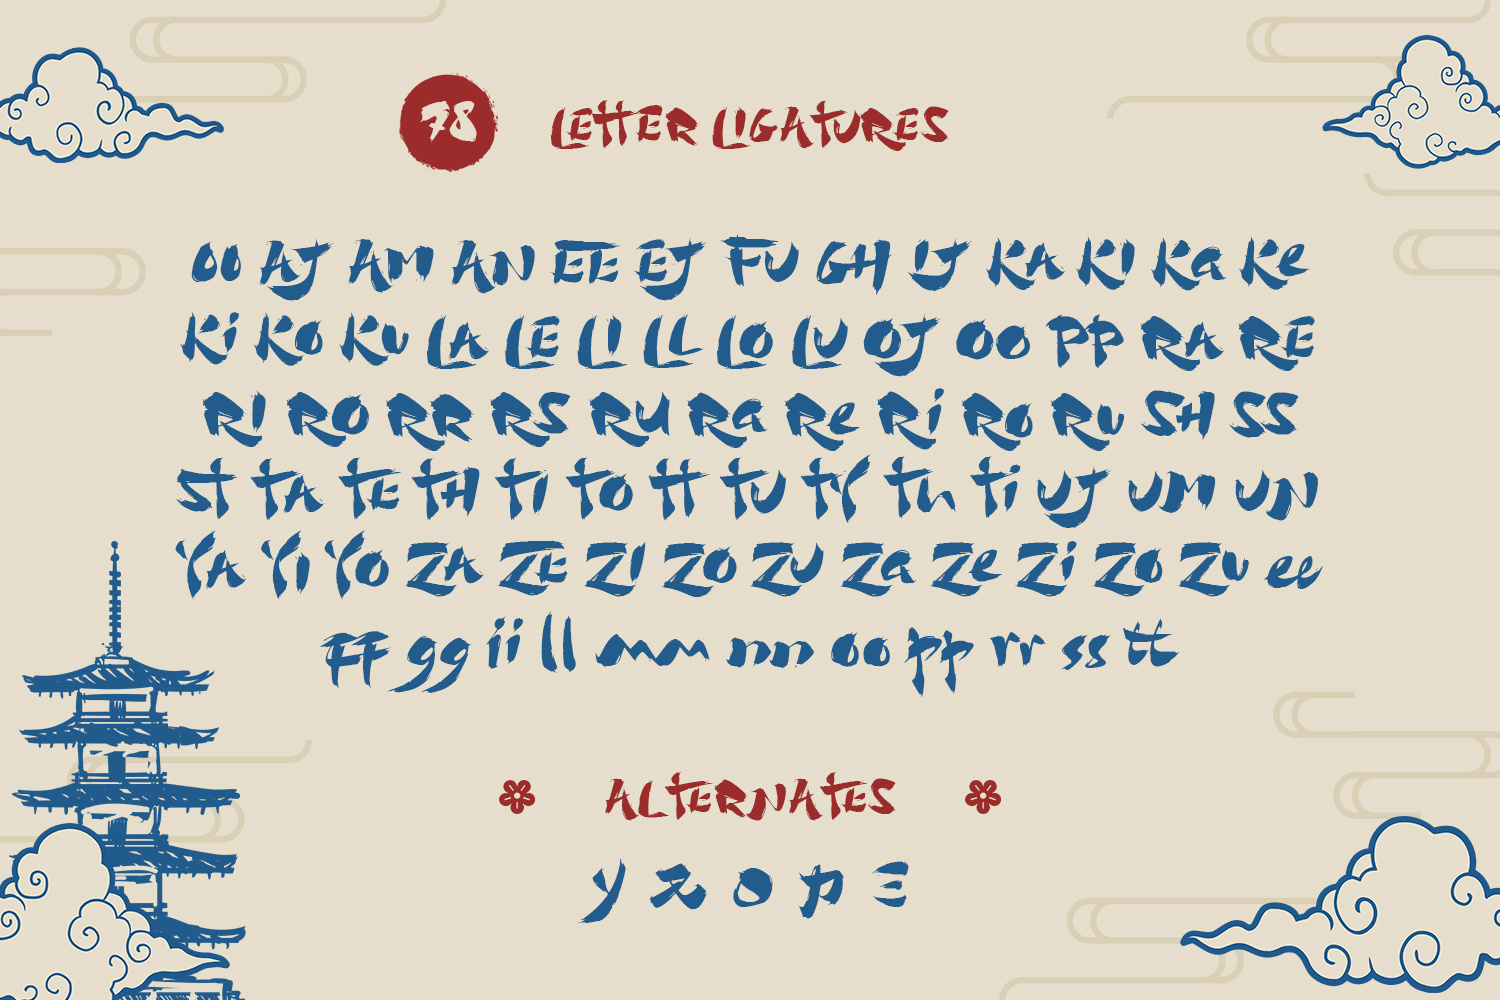 78 LETTER LIGATURES
00 AJ AM AN EE EJ FU GH IJ KA KI Ka Ke
Ki Ko Ku LA LE LI LL LO LU OJ OO PP RA RE
RI RO RR RS RU Ra Re Ri Ro Ru SH SS
ST TA TE TH TI TO TT TU TY Th Ti UJ UM UN
YA YI YO ZA ZE ZI ZO ZU Za Ze Zi Zo Zu ee
ff gg ii ll mm nn oo pp rr ss tt
ALTERNATES